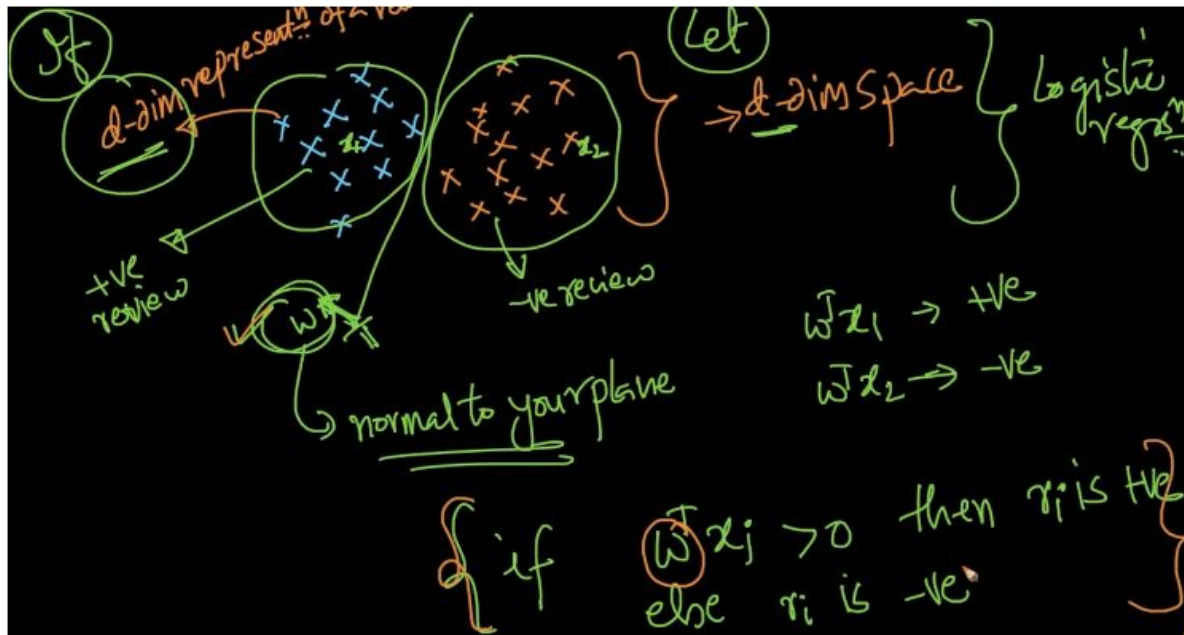 If
d-dim represent^n of a
x1
x2
Let
→ d-dim space
Logistic
regrs^n
+ve
review
-ve review
w
normal to your plane
w^T x1 → +ve
w^T x2 → -ve
if w^T xi > 0 then ri is +ve
else ri is -ve